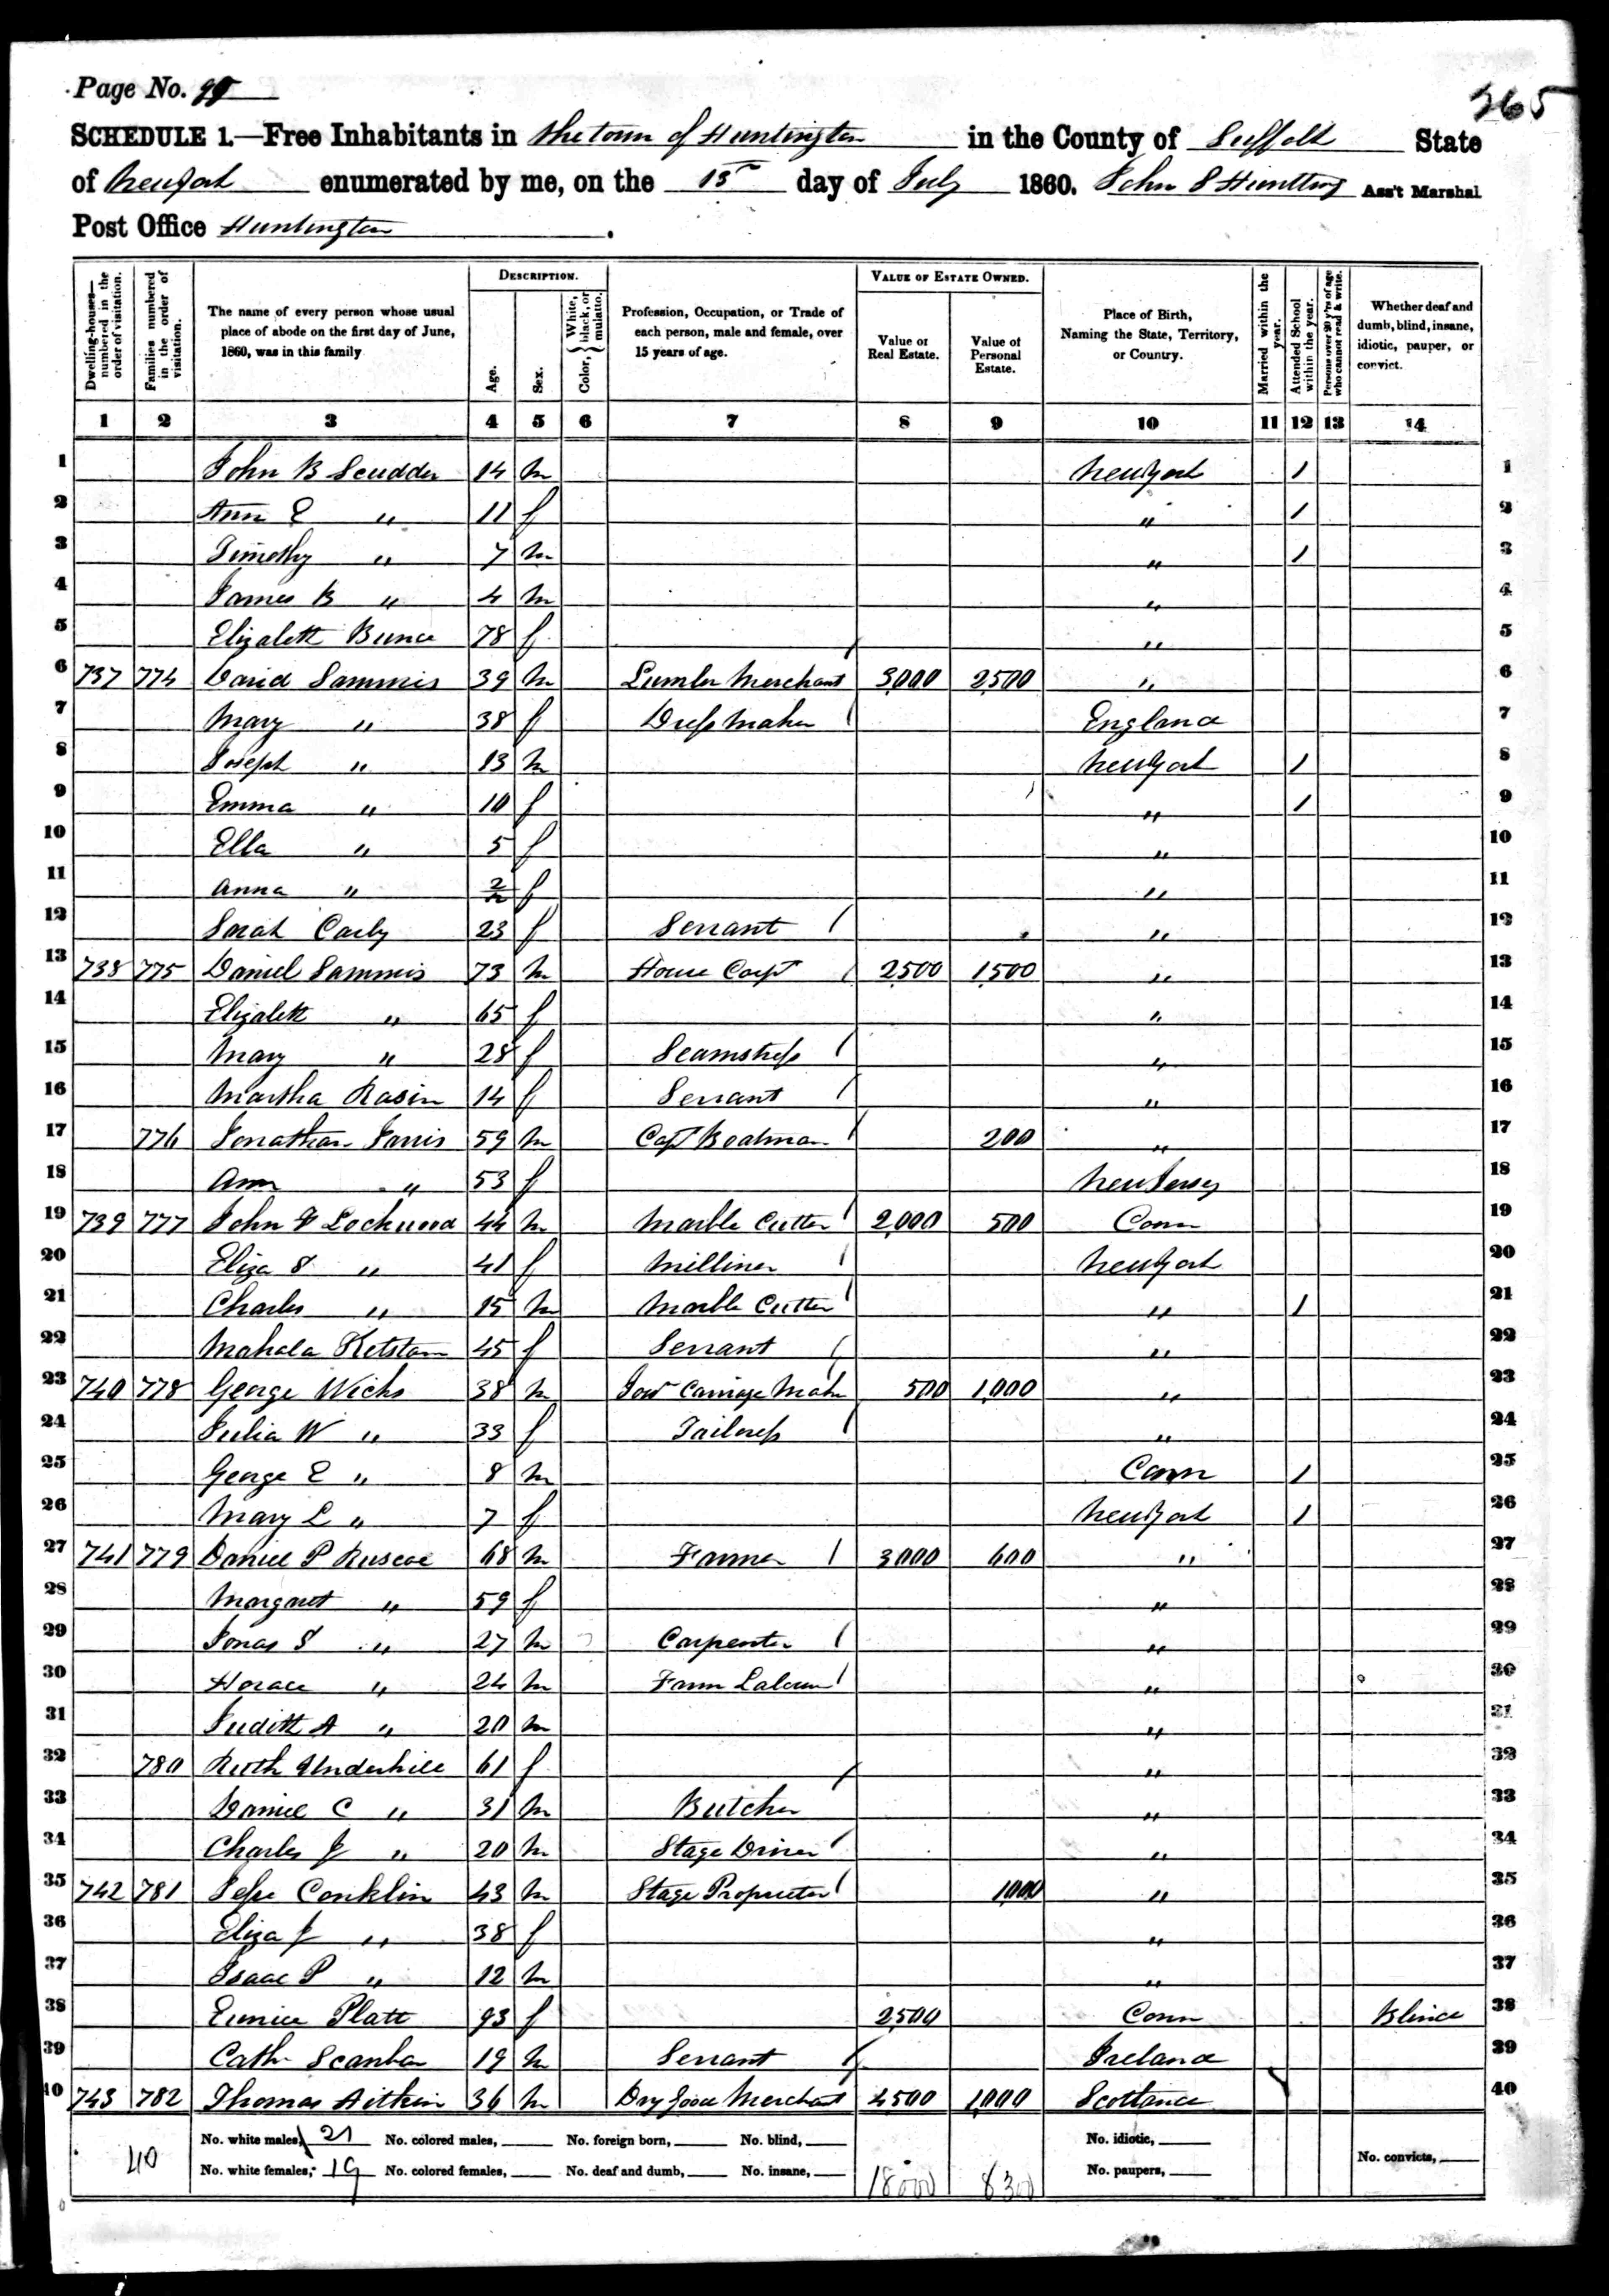 Page No. 95
365
SCHEDULE 1.—Free Inhabitants in the town of Huntington in the County of Suffolk State
of New York enumerated by me, on the 13th day of July 1860. John S Huntting Ass't Marshal
Post Office Huntington.
Dwelling-houses—numbered in the order of visitation. | Families numbered in the order of visitation. | The name of every person whose usual place of abode on the first day of June, 1860, was in this family | DESCRIPTION. Age. Sex. Color, {White, black, or mulatto. | Profession, Occupation, or Trade of each person, male and female, over 15 years of age. | VALUE OF ESTATE OWNED. Value of Real Estate. Value of Personal Estate. | Place of Birth, Naming the State, Territory, or Country. | Married within the year. | Attended School within the year. | Persons over 20 y'rs of age who cannot read & write. | Whether deaf and dumb, blind, insane, idiotic, pauper, or convict.
1 2 3 4 5 6 7 8 9 10 11 12 13 14
1 John B Scudder 14 m New York 1 1
2 Ann E " 11 f " 1 2
3 Timothy " 7 m " 1 3
4 James B " 4 m " 4
5 Elizabeth Bunce 78 f / " 5
6 737 774 David Sammis 39 m Lumber Merchant 3,000 2,500 " 6
7 Mary " 38 f Dress Maker / England 7
8 Joseph " 13 m New York 1 8
9 Emma " 10 f " 1 9
10 Ella " 5 f " 10
11 Anna " 2/12 f " 11
12 Sarah Carly 23 f Servant / " 12
13 738 775 Daniel Sammis 73 m House Carpt / 2,500 1,500 " 13
14 Elizabeth " 65 f " 14
15 Mary " 28 f Seamstress / " 15
16 Martha Rasin 14 f Servant / " 16
17 776 Jonathan Jarvis 59 m Capt Boatman / 200 " 17
18 Ann " 53 f New Jersey 18
19 739 777 John F Lockwood 44 m Marble Cutter / 2,000 500 Conn 19
20 Eliza S " 41 f Milliner / New York 20
21 Charles " 15 m Marble Cutter / " 1 21
22 Mahala Ketcham 45 f Servant / " 22
23 740 778 George Wicks 38 m Jour Carriage Maker 500 1,000 " 23
24 Julia W " 33 f Tailoress / " 24
25 George E " 8 m Conn 1 25
26 Mary L " 7 f New York 1 26
27 741 779 Daniel P Ruscoe 68 m Farmer / 3,000 600 " 27
28 Margaret " 59 f " 28
29 Jonas S " 27 m Carpenter / " 29
30 Horace " 24 m Farm Laborer / " 30
31 Judith A " 20 m " 31
32 780 Ruth Underhill 61 f / " 32
33 Daniel C " 31 m Butcher / " 33
34 Charles J " 20 m Stage Driver / " 34
35 742 781 Jesse Conklin 43 m Stage Proprietor / 1,000 " 35
36 Eliza J " 38 f " 36
37 Isaac P " 12 m " 37
38 Eunice Platt 93 f 2,500 Conn Blind 38
39 Cath Scanlan 19 m Servant / Ireland 39
40 743 782 Thomas Aitkin 36 m Dry Good Merchant 4,500 1,000 Scotland 40
40 No. white males, 21 No. colored males, No. foreign born, No. blind, No. idiotic,
No. white females, 19 No. colored females, No. deaf and dumb, No. insane, 18000 8300 No. paupers, No. convicts,